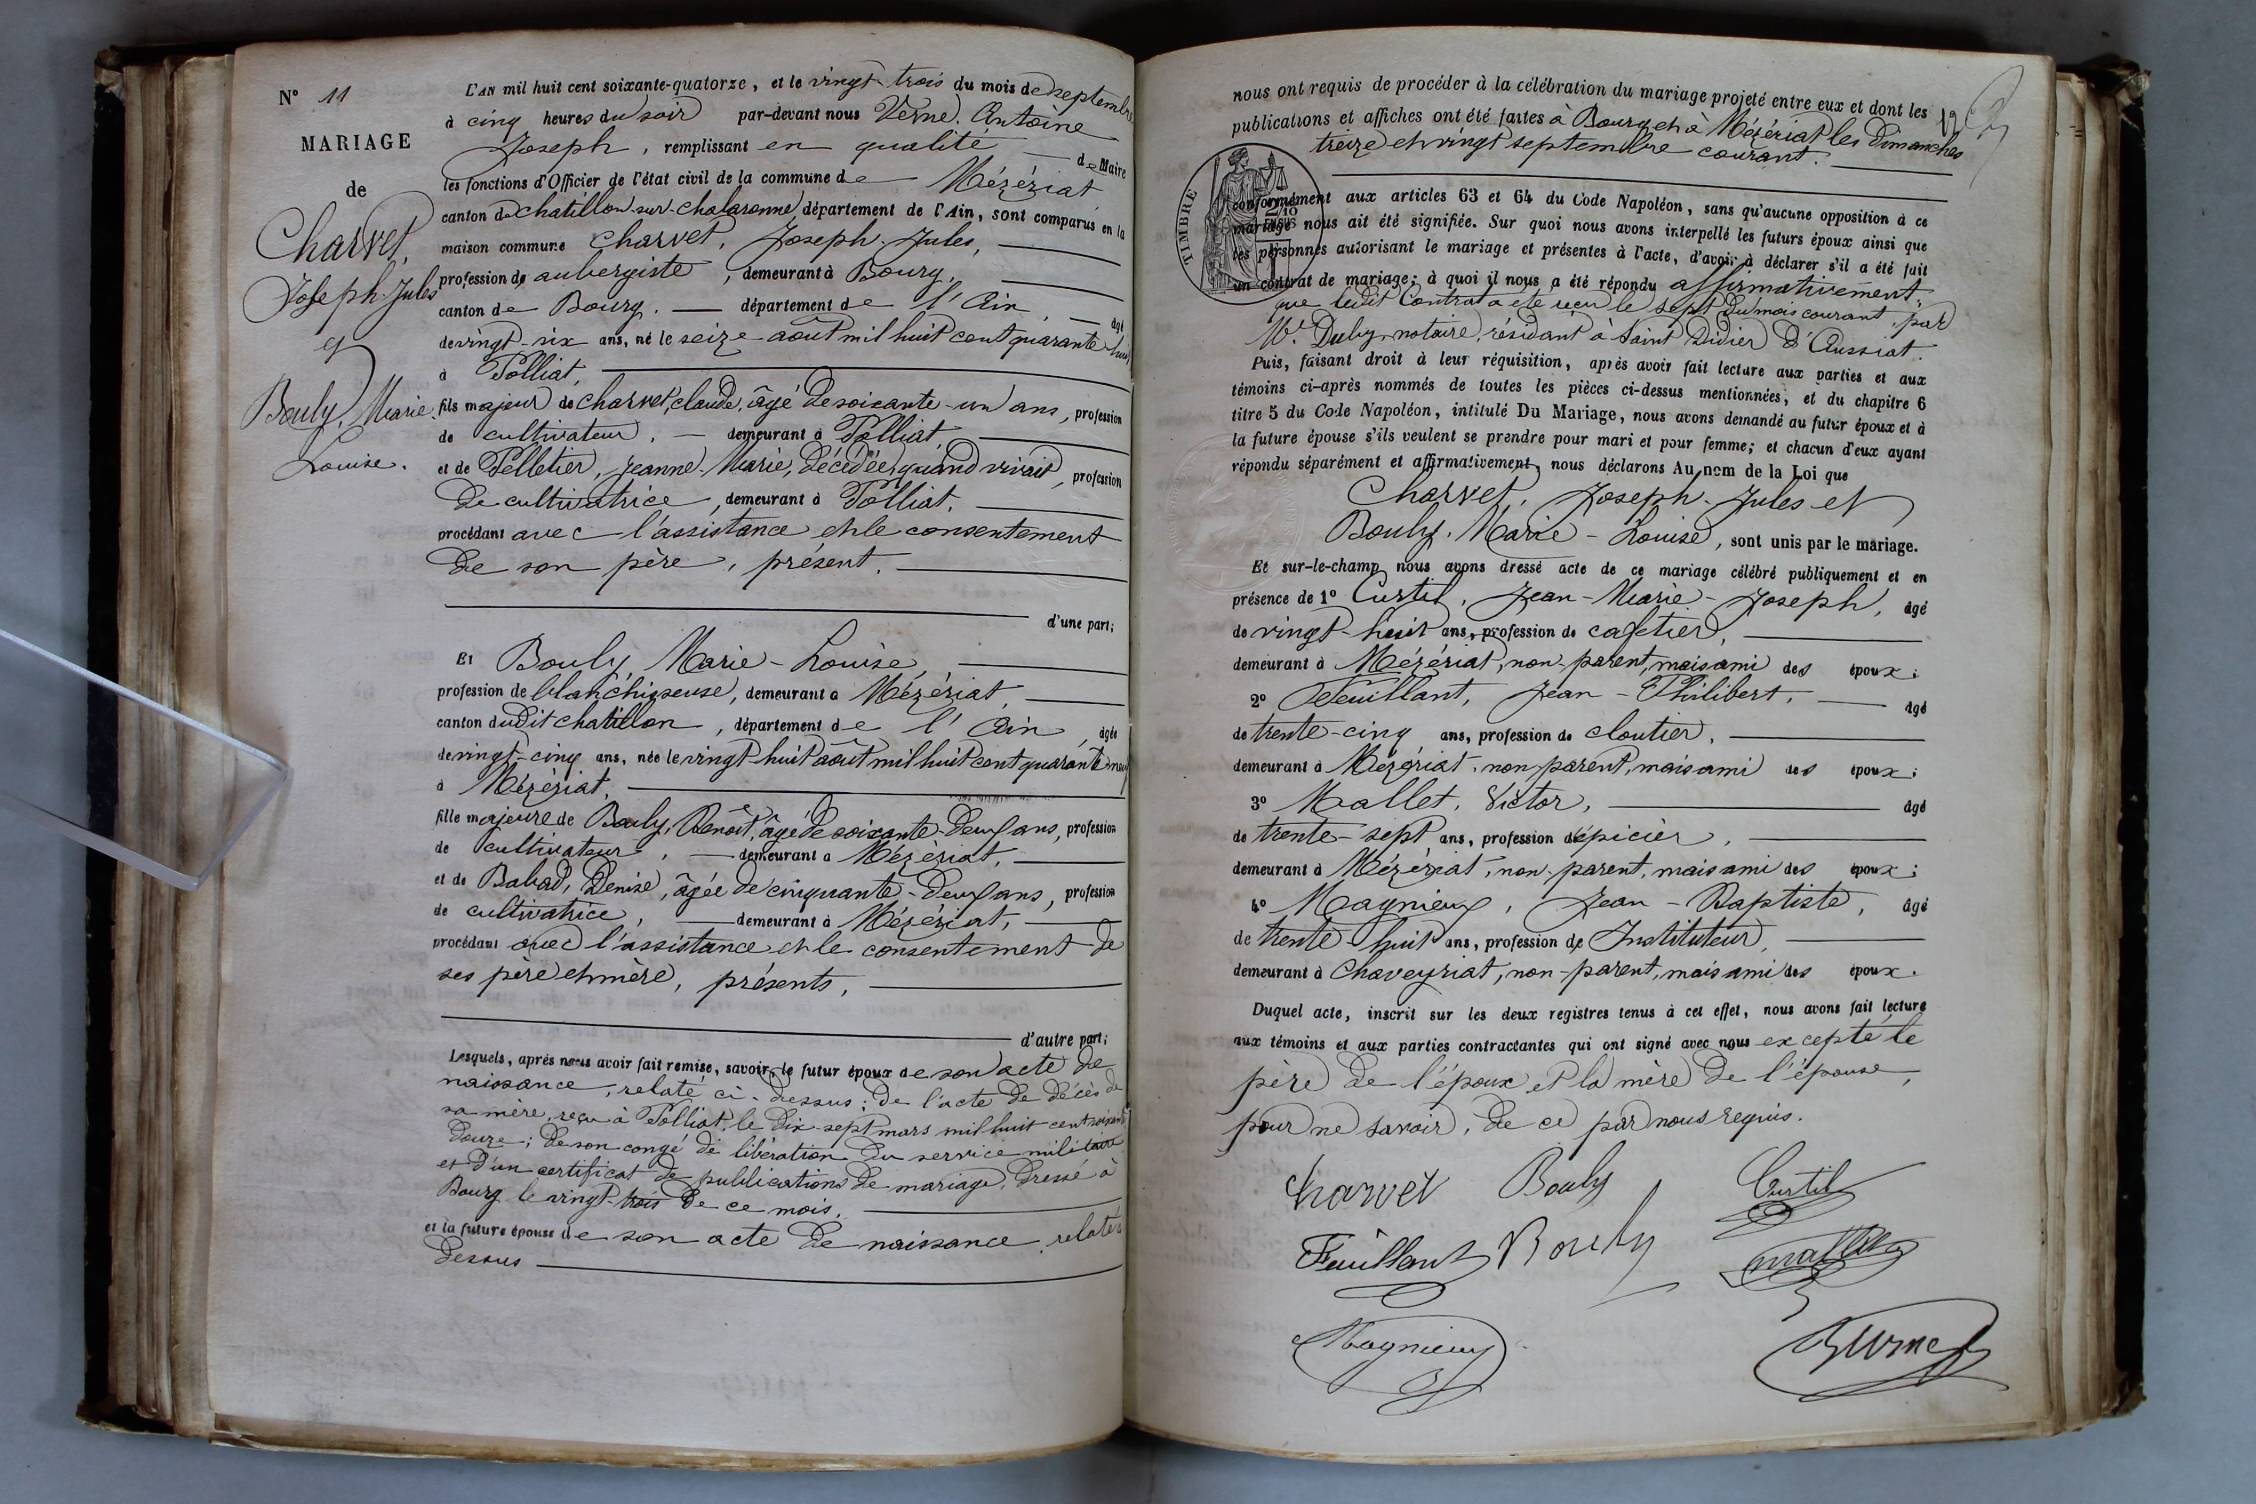 N° 11
MARIAGE
de
Charvet,
Joseph-Jules
et
Bouly, Marie-
Louise.
L'AN mil huit cent soixante-quatorze, et le vingt-trois du mois de septembre
à cinq heures du soir par-devant nous Verne, Antoine
Joseph, remplissant en qualité de Maire
les fonctions d'Officier de l'état civil de la commune de Mézériat
canton de Chatillon-sur-Chalaronne, département de l'Ain, sont comparus en la
maison commune Charvet, Joseph-Jules,
profession de aubergiste, demeurant à Bourg,
canton de Bourg. département de l'Ain, âgé
de vingt-six ans, né le seize août mil huit cent quarante huit
à Polliat,
fils majeur de Charvet, Claude, âgé de soixante-un ans, profession
de cultivateur, demeurant à Polliat,
et de Pelletier, Jeanne-Marie, décédée, quand vivait, profession
de cultivatrice, demeurant à Polliat,
procédant avec l'assistance et le consentement
de son père, présent.
d'une part;
Et Bouly, Marie-Louise,
profession de blanchisseuse, demeurant à Mézériat,
canton dudit Chatillon, département de l'Ain, âgée
de vingt-cinq ans, née le vingt-huit août mil huit cent quarante neuf
à Mézériat,
fille majeure de Bouly, Benoît, âgé de soixante-deux ans, profession
de cultivateur, demeurant à Mézériat,
et de Babad, Denise, âgée de cinquante-deux ans, profession
de cultivatrice, demeurant à Mézériat,
procédant avec l'assistance et le consentement de
ses père et mère, présents,
d'autre part;
Lesquels, après nous avoir fait remise, savoir, le futur époux de son acte de
naissance, relaté ci-dessus; de l'acte de décès de
sa mère, reçu à Polliat, le dix-sept mars mil huit cent soixante
douze; de son congé de libération du service militaire
et d'un certificat de publications de mariage, dressé à
Bourg le vingt-trois de ce mois.
et la future épouse de son acte de naissance, relaté ci
dessus
nous ont requis de procéder à la célébration du mariage projeté entre eux et dont les
publications et affiches ont été faites à Bourg et à Mézériat les Dimanches
treize et vingt septembre courant.
TIMBRE
conformément aux articles 63 et 64 du Code Napoléon, sans qu'aucune opposition à ce
mariage nous ait été signifiée. Sur quoi nous avons interpellé les futurs époux ainsi que
les personnes autorisant le mariage et présentes à l'acte, d'avoir à déclarer s'il a été fait
un contrat de mariage; à quoi il nous a été répondu affirmativement,
que ledit Contrat a été reçu le sept du mois courant, par
Me Duby, notaire, résidant à Saint Didier d'Aussiat.
Puis, faisant droit à leur réquisition, après avoir fait lecture aux parties et aux
témoins ci-après nommés de toutes les pièces ci-dessus mentionnées, et du chapitre 6
titre 5 du Code Napoléon, intitulé Du Mariage, nous avons demandé au futur époux et à
la future épouse s'ils veulent se prendre pour mari et pour femme; et chacun d'eux ayant
répondu séparément et affirmativement, nous déclarons Au nom de la Loi que
Charvet, Joseph-Jules et
Bouly, Marie-Louise, sont unis par le mariage.
Et sur-le-champ nous avons dressé acte de ce mariage célébré publiquement et en
présence de 1° Curtil, Jean-Marie-Joseph, âgé
de vingt-huit ans, profession de cafetier,
demeurant à Mézériat, non-parent, mais ami des époux;
2° Feuillant, Jean-Philibert, âgé
de trente-cinq ans, profession de cloutier,
demeurant à Mézériat, non-parent, mais ami des époux;
3° Mallet, Victor, âgé
de trente-sept ans, profession d'épicier,
demeurant à Mézériat, non-parent, mais ami des époux;
4° Magnieux, Jean-Baptiste, âgé
de trente-huit ans, profession de Instituteur,
demeurant à Chaveyriat, non-parent, mais ami des époux.
Duquel acte, inscrit sur les deux registres tenus à cet effet, nous avons fait lecture
aux témoins et aux parties contractantes qui ont signé avec nous excepté le
père de l'époux et la mère de l'épouse,
pour ne savoir, de ce par nous requis.
Charvet Bouly Curtil
Feuillant Bouly Mallet
Magnieux Verne